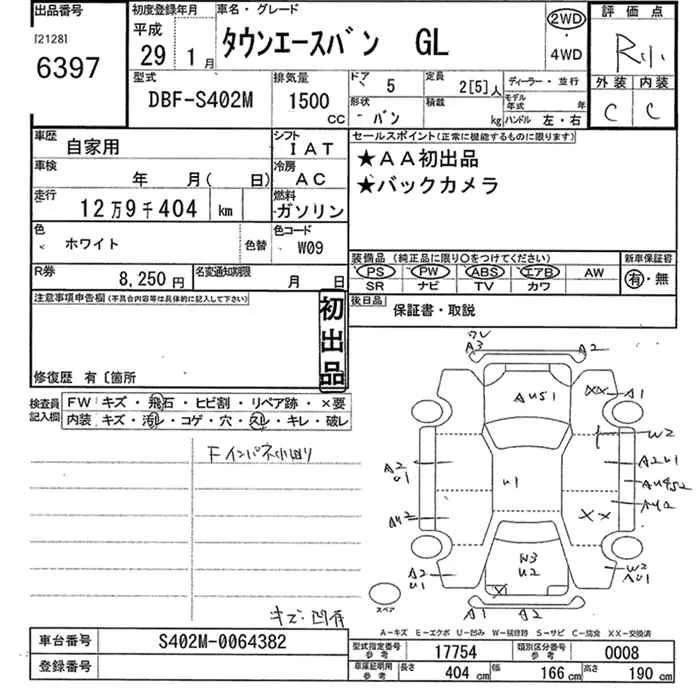 出品番号
[2128]
6397
初度登録年月
平成
29 1月
車名・グレード
タウンエースバン GL
2WD
・
4WD
評価点
R小
外装 内装
C C
型式
DBF-S402M
排気量
1500
CC
ドア 5
定員 2[5]人
形状 バン
積載 kg
ディーラー・並行
モデル年式 年
ハンドル 左・右
車歴 自家用
シフト IAT
車検 年 月( 日)
冷房 AC
走行 12万9千404 km
燃料 ガソリン
色 ホワイト
色替
色コード W09
R券 8,250円
名変通知期限 月 日
セールスポイント(正常に機能するものに限ります)
★AA初出品
★バックカメラ
装備品 (純正品に限り○をつけてください)
PS PW ABS エアB AW
SR ナビ TV カワ
新車保証書
有・無
後日品 保証書・取説
注意事項申告欄(不具合内容等は具体的に記入して下さい)
初出品
修復歴 有〔箇所
検査員記入欄
FW キズ・飛石・ヒビ割・リペア跡・×要
内装 キズ・汚レ・コゲ・穴・スレ・キレ・破レ
Fインパネ小凹り
キズ・凹有
ワレ
A3 A2
AU51
XX A1
W2
A2
U1
U1
A2U1
AU4S2
AU2
AU2
XX
A2
U1
W3
U2
X
W2
AU1
スペア
A1 A2
A-キズ E-エクボ U-凹み W-補修跡 S-サビ C-腐食 XX-交換済
車台番号 S402M-0064382
登録番号
型式指定番号 参考 17754
類別区分番号 参考 0008
車庫証明用 参考 長さ 404 cm 幅 166 cm 高さ 190 cm